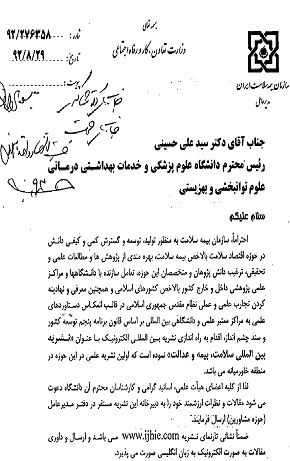 بسمه تعالی
شماره: ۹۲/۲۷۶۳۵۸
تاریخ: ۹۲/۸/۲۹
وزارت تعاون، کار و رفاه اجتماعی
سازمان بیمه سلامت ایران
مدیرعامل
جناب آقای دکتر سید علی حسینی
رئیس محترم دانشگاه علوم پزشکی و خدمات بهداشتی درمانی
علوم توانبخشی و بهزیستی
سلام علیکم
احتراماً، سازمان بیمه سلامت به منظور تولید، توسعه و گسترش کمی و کیفی دانش
در حوزه اقتصاد سلامت بالاخص بیمه سلامت، بهره مندی از پژوهش ها و مطالعات علمی و
تحقیقی، ترغیب دانش پژوهان و متخصصان این حوزه، تعامل سازنده با دانشگاهها و مراکز
علمی پژوهشی داخل و خارج کشور بالاخص کشورهای اسلامی و همچنین معرفی و نهادینه
کردن تجارب علمی و عملی نظام مقدس جمهوری اسلامی در قالب انعکاس دستاوردهای
علمی به مراکز معتبر علمی و دانشگاهی بین المللی بر اساس قانون برنامه پنجم توسعه کشور
و سند چشم انداز، اقدام به راه اندازی نشریه بین المللی الکترونیک با عنوان «نشریه
بین المللی سلامت، بیمه و عدالت» نموده است که اولین نشریه علمی در این حوزه در
منطقه خاورمیانه می باشد.
لذا از کلیه اعضای هیأت علمی، اساتید گرامی و کارشناسان محترم آن دانشگاه دعوت
می شود مقالات و نظرات ارزشمند خود را به دبیرخانه این نشریه مستقر در دفتر مدیرعامل
(حوزه مشاورین) ارسال فرمایند.
ضمناً نشانی تارنمای نشریه www.ijhie.com می باشد و ارسال و داوری
مقالات به صورت الکترونیک به زبان انگلیسی صورت می پذیرد.